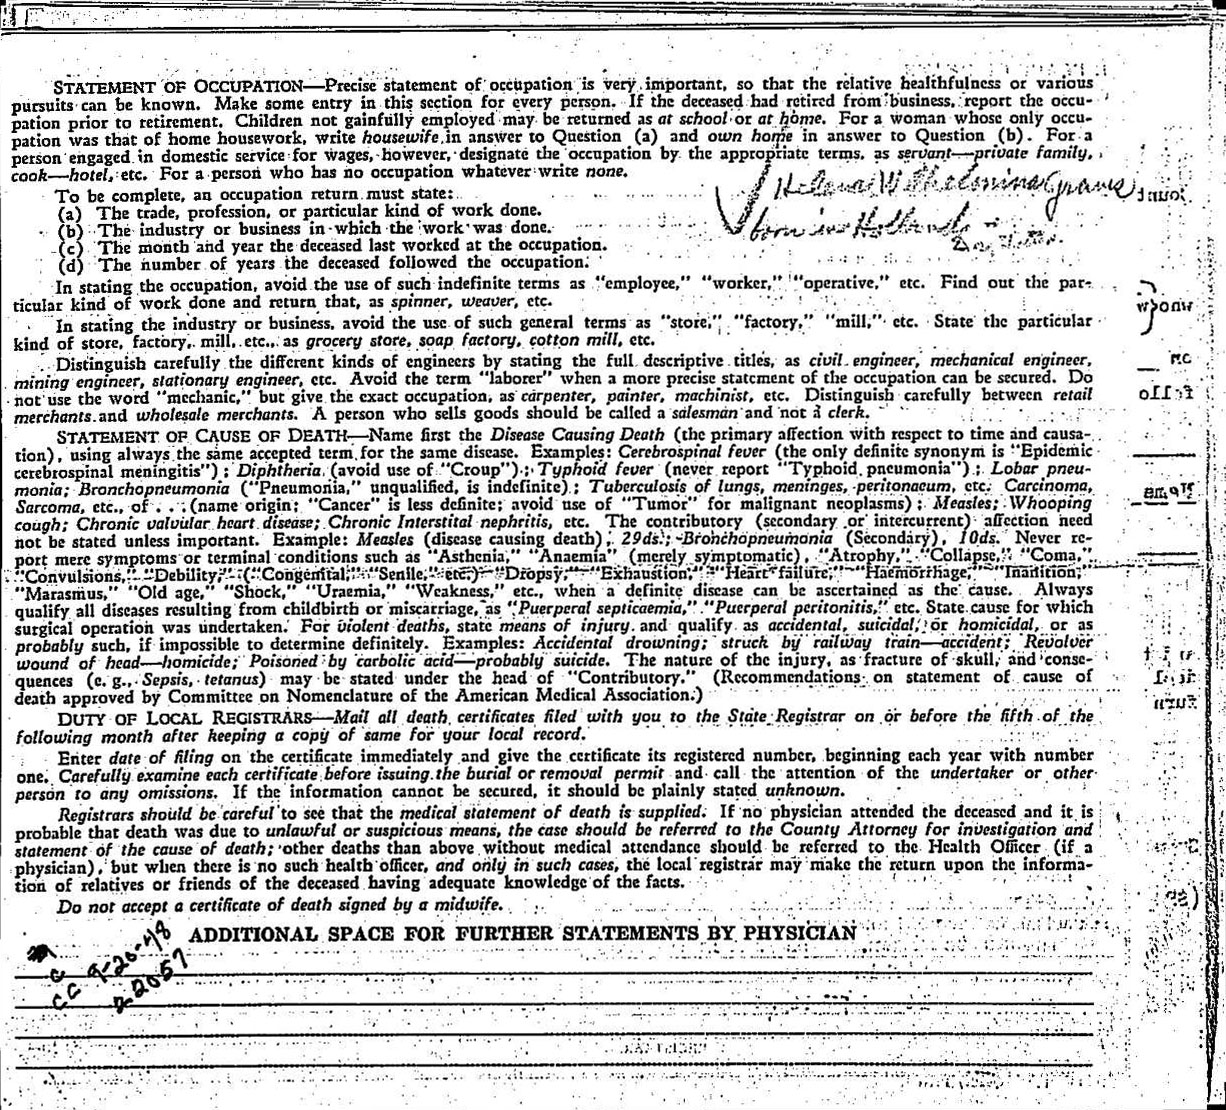 STATEMENT OF OCCUPATION—Precise statement of occupation is very important, so that the relative healthfulness or various
pursuits can be known. Make some entry in this section for every person. If the deceased had retired from business, report the occu-
pation prior to retirement. Children not gainfully employed may be returned as at school or at home. For a woman whose only occu-
pation was that of home housework, write housewife in answer to Question (a) and own home in answer to Question (b). For a
person engaged in domestic service for wages, however, designate the occupation by the appropriate terms, as servant—private family,
cook—hotel, etc. For a person who has no occupation whatever write none.
Helena Wilhelmina Graves
born in Holland
To be complete, an occupation return must state:
(a) The trade, profession, or particular kind of work done.
(b) The industry or business in which the work was done.
(c) The month and year the deceased last worked at the occupation.
(d) The number of years the deceased followed the occupation.
In stating the occupation, avoid the use of such indefinite terms as "employee," "worker," "operative," etc. Find out the par-
ticular kind of work done and return that, as spinner, weaver, etc.
In stating the industry or business, avoid the use of such general terms as "store," "factory," "mill," etc. State the particular
kind of store, factory, mill, etc., as grocery store, soap factory, cotton mill, etc.
Distinguish carefully the different kinds of engineers by stating the full descriptive titles, as civil engineer, mechanical engineer,
mining engineer, stationary engineer, etc. Avoid the term "laborer" when a more precise statement of the occupation can be secured. Do
not use the word "mechanic," but give the exact occupation, as carpenter, painter, machinist, etc. Distinguish carefully between retail
merchants and wholesale merchants. A person who sells goods should be called a salesman and not a clerk.
STATEMENT OF CAUSE OF DEATH—Name first the Disease Causing Death (the primary affection with respect to time and causa-
tion), using always the same accepted term for the same disease. Examples: Cerebrospinal fever (the only definite synonym is "Epidemic
cerebrospinal meningitis"); Diphtheria (avoid use of "Croup"); Typhoid fever (never report "Typhoid pneumonia"); Lobar pneu-
monia; Bronchopneumonia ("Pneumonia," unqualified, is indefinite); Tuberculosis of lungs, meninges, peritonaeum, etc. Carcinoma,
Sarcoma, etc., of . . . (name origin; "Cancer" is less definite; avoid use of "Tumor" for malignant neoplasms); Measles; Whooping
cough; Chronic valvular heart disease; Chronic Interstital nephritis, etc. The contributory (secondary or intercurrent) affection need
not be stated unless important. Example: Measles (disease causing death), 29ds.; Bronchopneumonia (Secondary), 10ds. Never re-
port mere symptoms or terminal conditions such as "Asthenia," "Anaemia" (merely symptomatic), "Atrophy," "Collapse," "Coma,"
"Convulsions," "Debility," ("Congenital," "Senile," etc.) "Dropsy," "Exhaustion," "Heart failure," "Haemorrhage," "Inanition,"
"Marasmus," "Old age," "Shock," "Uraemia," "Weakness," etc., when a definite disease can be ascertained as the cause. Always
qualify all diseases resulting from childbirth or miscarriage, as "Puerperal septicaemia," "Puerperal peritonitis," etc. State cause for which
surgical operation was undertaken. For violent deaths, state means of injury and qualify as accidental, suicidal, or homicidal, or as
probably such, if impossible to determine definitely. Examples: Accidental drowning; struck by railway train—accident; Revolver
wound of head—homicide; Poisoned by carbolic acid—probably suicide. The nature of the injury, as fracture of skull, and conse-
quences (e. g., Sepsis, tetanus) may be stated under the head of "Contributory." (Recommendations on statement of cause of
death approved by Committee on Nomenclature of the American Medical Association.)
DUTY OF LOCAL REGISTRARS—Mail all death certificates filed with you to the State Registrar on or before the fifth of the
following month after keeping a copy of same for your local record.
Enter date of filing on the certificate immediately and give the certificate its registered number, beginning each year with number
one. Carefully examine each certificate before issuing the burial or removal permit and call the attention of the undertaker or other
person to any omissions. If the information cannot be secured, it should be plainly stated unknown.
Registrars should be careful to see that the medical statement of death is supplied. If no physician attended the deceased and it is
probable that death was due to unlawful or suspicious means, the case should be referred to the County Attorney for investigation and
statement of the cause of death; other deaths than above without medical attendance should be referred to the Health Officer (if a
physician), but when there is no such health officer, and only in such cases, the local registrar may make the return upon the informa-
tion of relatives or friends of the deceased having adequate knowledge of the facts.
Do not accept a certificate of death signed by a midwife.
ADDITIONAL SPACE FOR FURTHER STATEMENTS BY PHYSICIAN
CC 9-20-48
CC 2-20-57